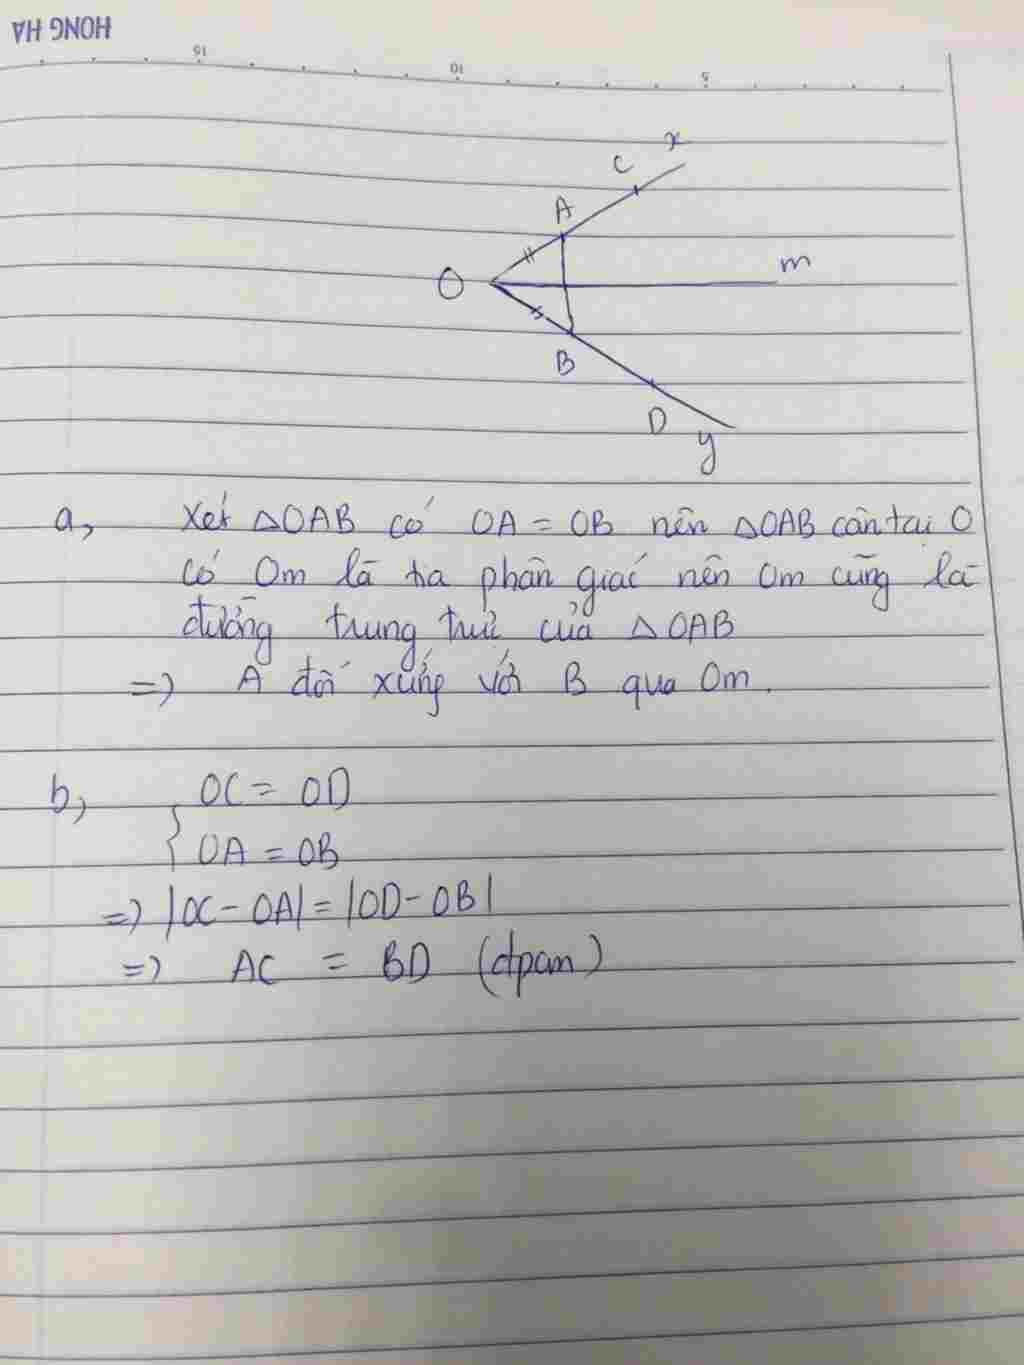 HONG HA
15
10
5
x
C
A
m
O
B
D
y
a, Xét △OAB có OA = OB nên △OAB cân tại O
có Om là tia phân giác nên Om cũng là
đường trung trực của △OAB
=> A đối xứng với B qua Om.
b, { OC = OD
OA = OB
=> |OC - OA| = |OD - OB|
=> AC = BD (đpcm)